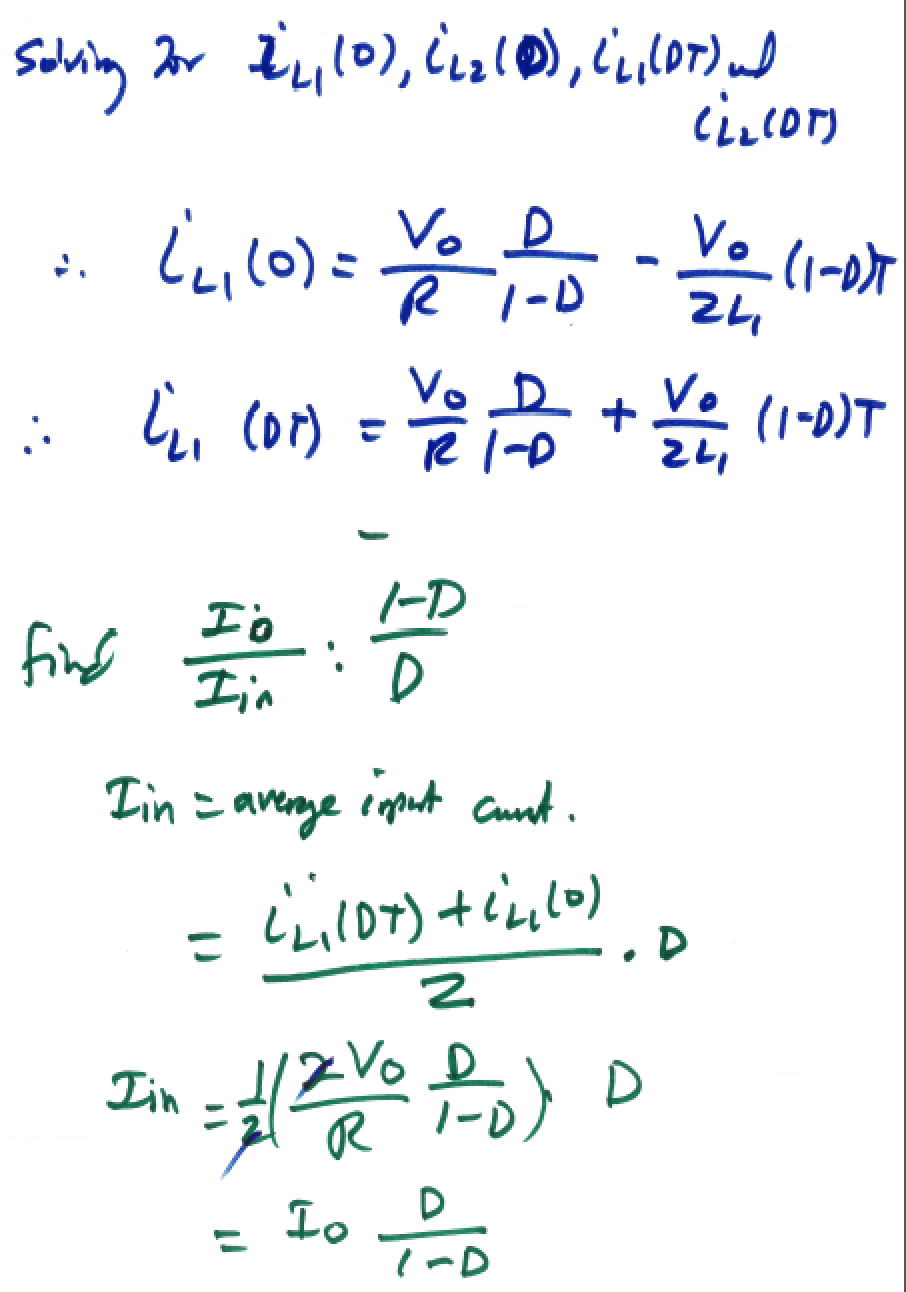 Solving for i_L1(0), i_L2(0), i_L1(DT) and
i_L2(DT)
∴ i_L1(0) = V_o/R D/(1-D) - V_o/(2L_1) (1-D)T
∴ i_L1(DT) = V_o/R D/(1-D) + V_o/(2L_1) (1-D)T
-
find I_o/I_in : (1-D)/D
I_in = average input current.
= (i_L1(DT) + i_L1(0))/2 . D
I_in = 1/2 (2V_o/R D/(1-D)) D
= I_o D/(1-D)